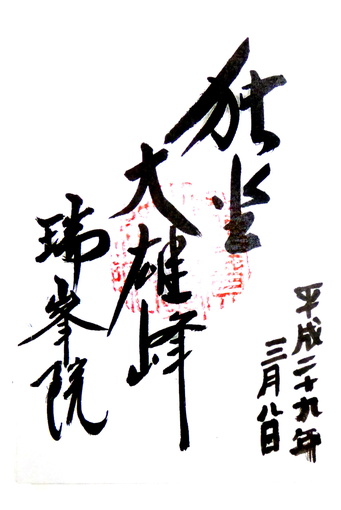 平成二十九年
三月八日
独坐
大雄峰
瑞峯院